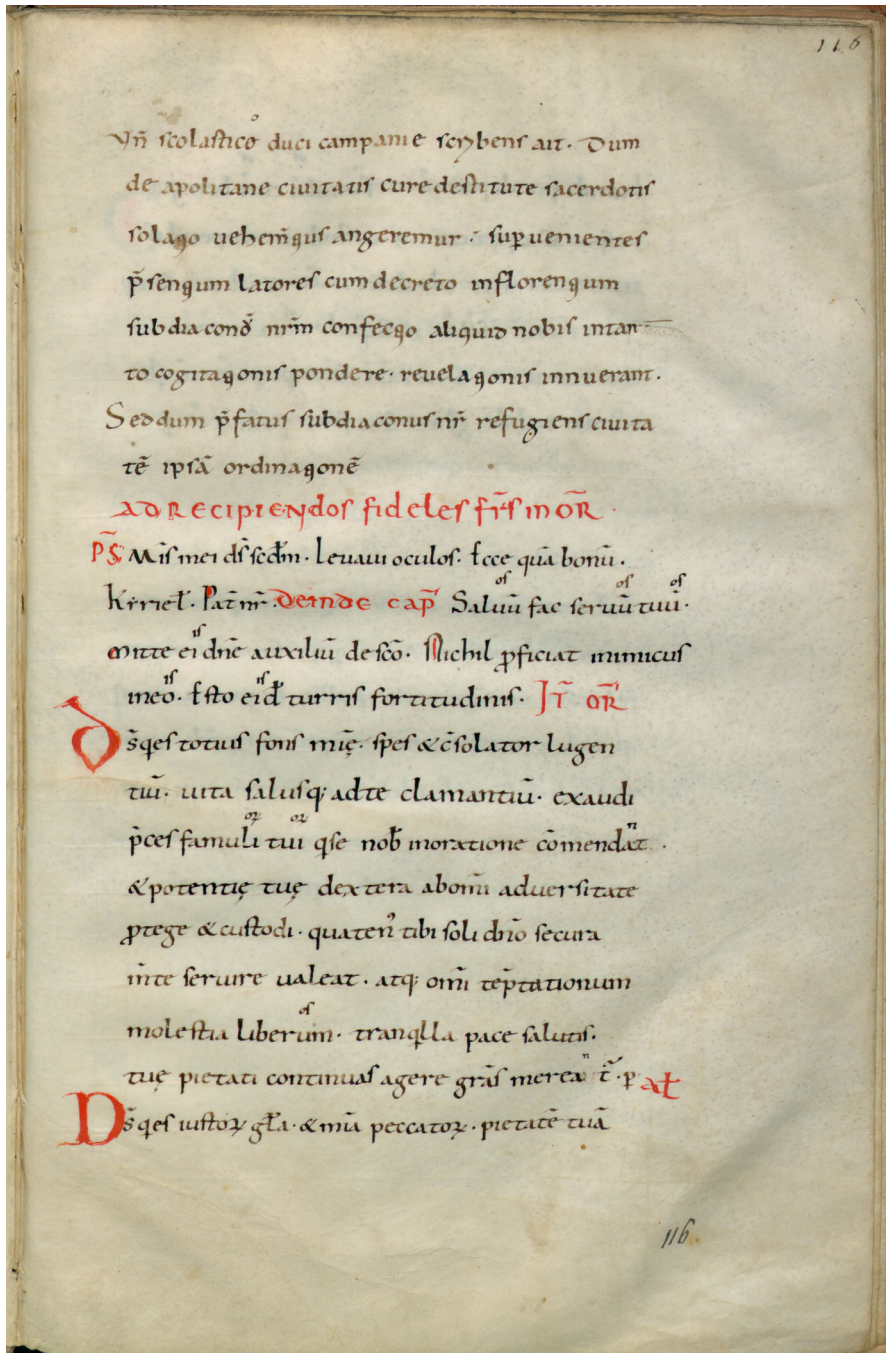 116
Vn̄ scolastico duci campanie scrybens ait. Dum
de apolitane ciuitatis cure destitute sacerdotis
solaqo uehem̄qus angeremur : sup̱uenientes
p̄senqum latores cum decreto inflorenqum
subdiacon nr̄m confecqo aliquid nobis intan
to cogitaqonis pondere. reuelaqonis innuerant.
Sed dum p̄fatus subdiaconus nr̄ refugiens ciuita
tē ipsā ordinaqonē
AD RECIPIENDOS fideles fr̄s in OR̄.
PS̄ Mis̄ mei ds̄ scd̄m. Leuaui oculos. Ecce quā bonū.
Kyriel̄. Pat̄ nr̄. Deinde cap̄ Saluū fac seruū tuū.
os os os
Mitte ei dn̄e auxiliū de scō. Nichil ꝓficiat inimicus
is
in eo. Esto ei d̄ turris fortitudinis. IT̄ OR̄
is is
Ds̄ qes totius fons mię̄. spes & c̄solator lugen
tiū. uita salusq; ad te clamantiū. exaudi
p̄ces famuli tui qse nob̄ in oratione c̄omendat.
oꝝ oꝝ n
& potentię tuę dextera ab om̄i aduersitate
ꝓtege & custodi. quaten᾽ tibi soli dn̄o secura
m̄te seruire ualeat. atq; om̄i tēp̄tationum
molestia liberum. tranqlla pace salutis.
os
tuę pietati continuas agere grās merea t̄. p̱ AL̄
n
Ds̄ qes iustoꝝ gl̄a. & mīa peccatoꝝ. pietatē tuā
116